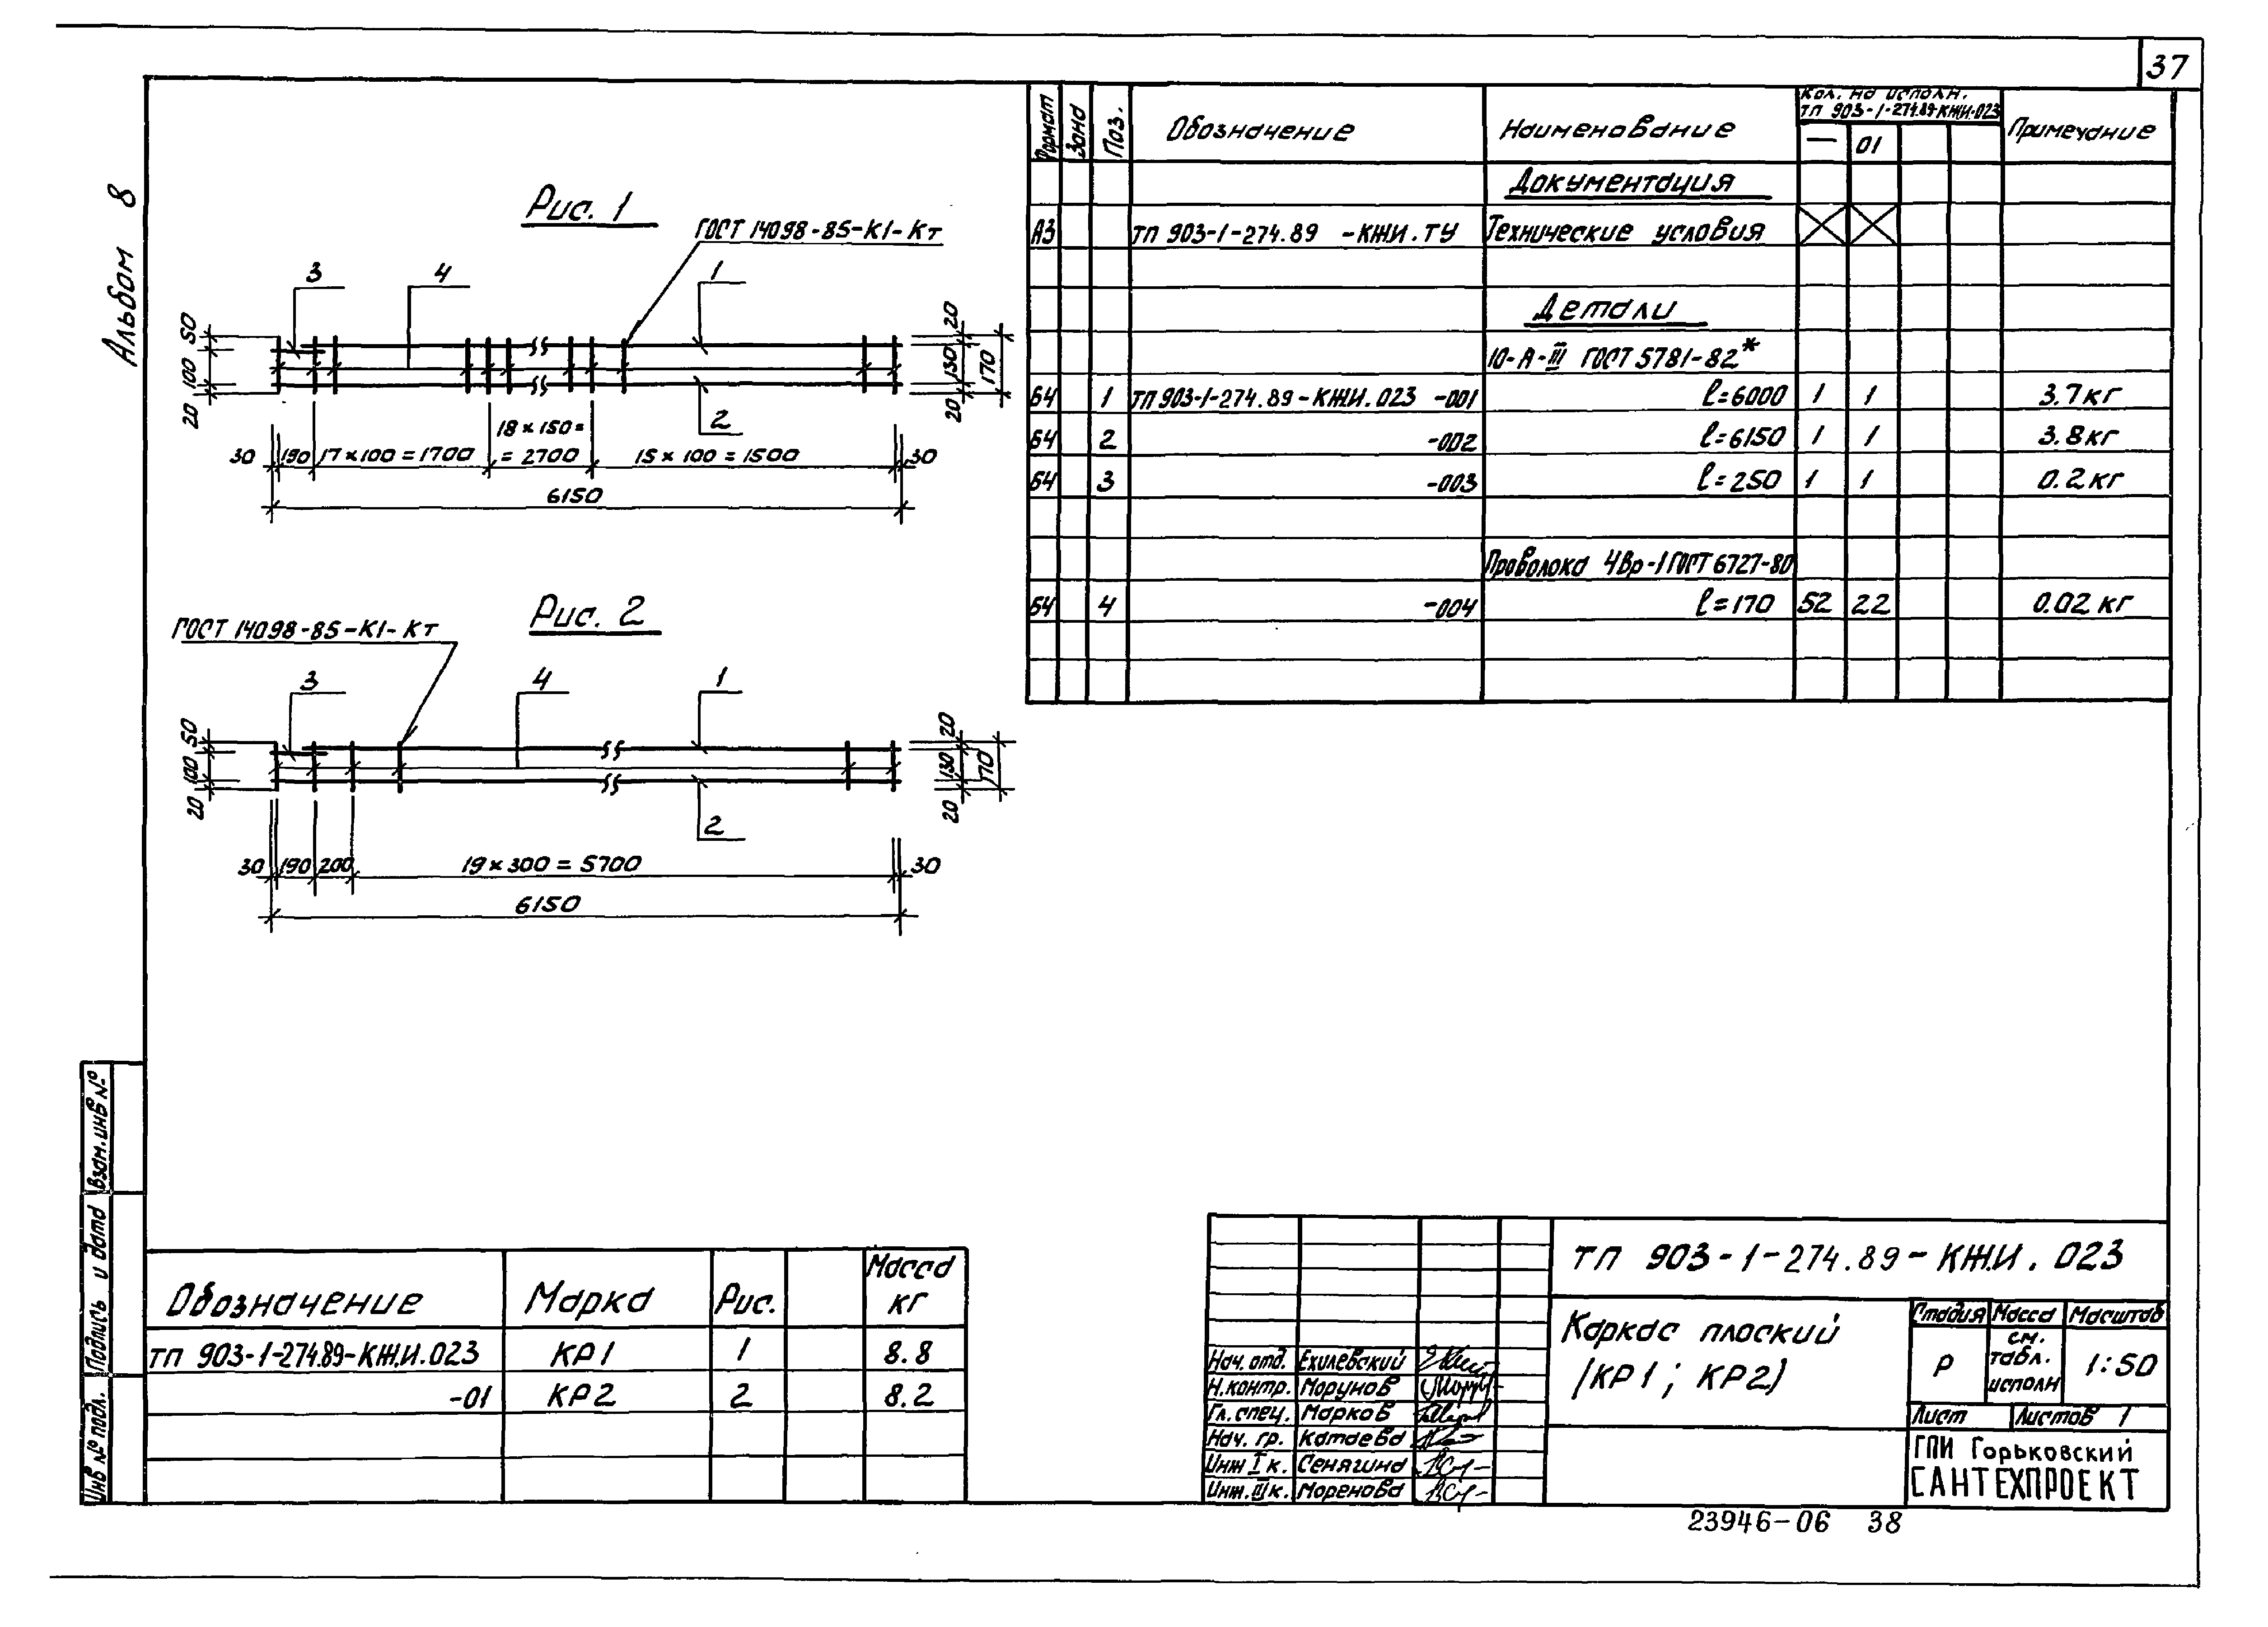 37
Альбом 8
Рис. 1
ГОСТ 14098-85-К1-Кт
3
4
1
2
50
100
20
20
130
20
170
18 × 150 =
30 190 17 × 100 = 1700 = 2700 15 × 100 = 1500 30
6150
Рис. 2
ГОСТ 14098-85-К1-Кт
3
4
1
2
50
100
20
20
130
20
170
30 190 200 19 × 300 = 5700 30
6150
Формат Зона Поз. Обозначение Наименование Кол. на исполн. Примечание
ТП 903-1-274.89-КЖИ.023
— 01
Документация
А3 ТП 903-1-274.89 -КЖИ.ТУ Технические условия
Детали
10-А-III ГОСТ 5781-82*
Б4 1 ТП 903-1-274.89-КЖИ.023 -001 ℓ=6000 1 1 3.7 кг
Б4 2 -002 ℓ=6150 1 1 3.8 кг
Б4 3 -003 ℓ=250 1 1 0.2 кг
Проволока 4Вр-1 ГОСТ 6727-80
Б4 4 -004 ℓ=170 52 22 0.02 кг
Взам. инв №
Подпись и дата
Инв № подл.
Обозначение Марка Рис. Масса кг
ТП 903-1-274.89-КЖ.И.023 КР1 1 8.8
-01 КР2 2 8.2
ТП 903-1-274.89-КЖ.И.023
Каркас плоский
(КР1; КР2)
Стадия Масса Масштаб
Р см. табл. исполн 1:50
Лист Листов 1
ГПИ Горьковский
САНТЕХПРОЕКТ
Нач. отд. Ехилевский
Н.контр. Морунов
Гл. спец. Марков
Нач. гр. Катаева
Инж I к. Сенягина
Инж. III к. Моренова
23946-06 38